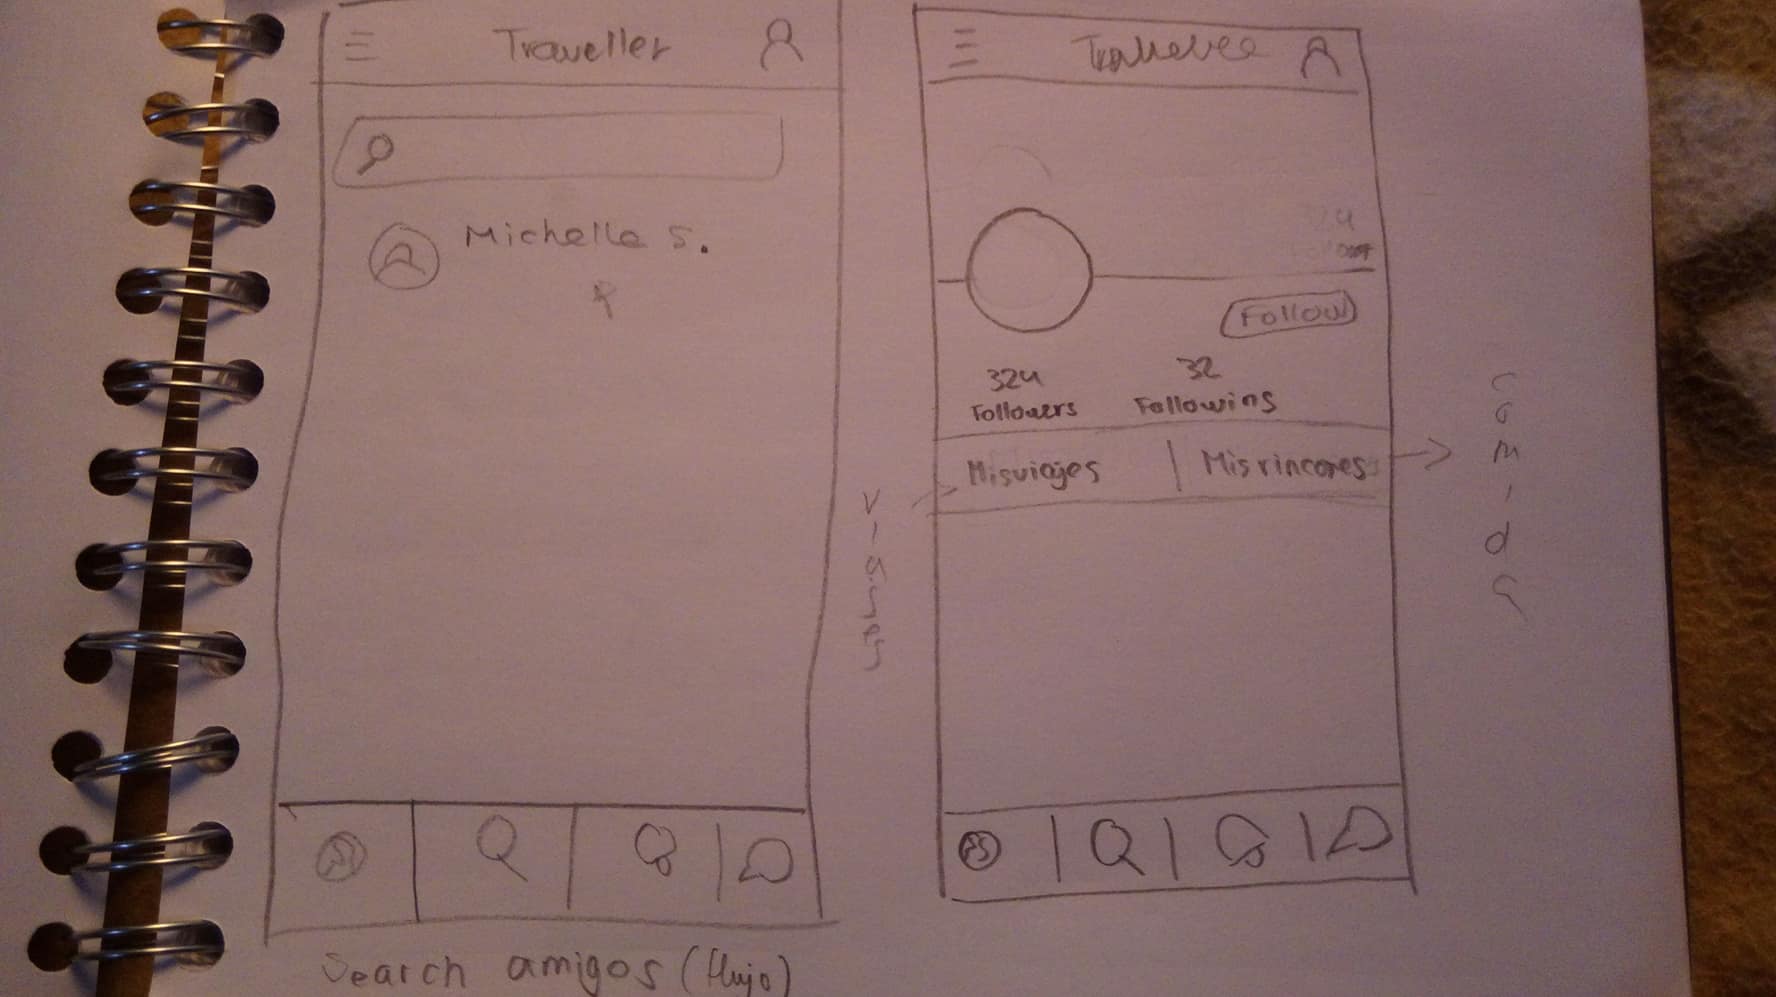 Traveller
Michelle S.
Search amigos (flujo)
Follow
324
Followers
32
Following
Misviajes | Misrincones
viajes
comida